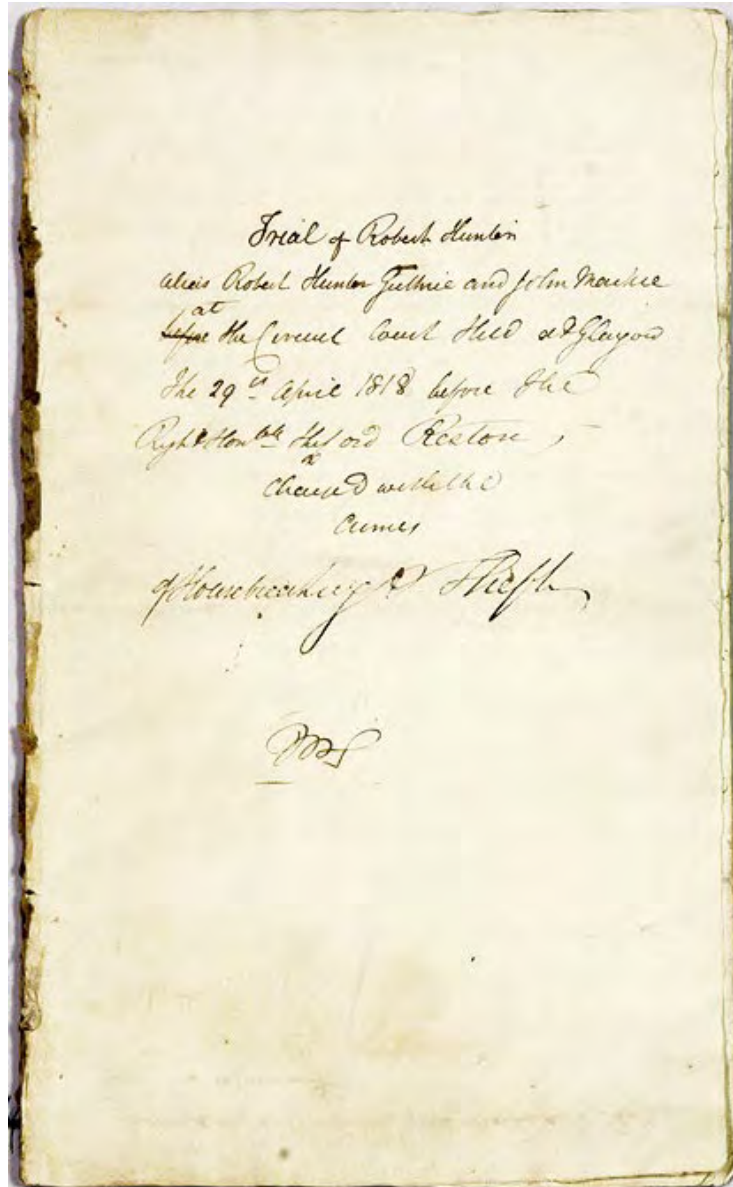 Trial of Robert Hunter
alias Robert Hunter Guthrie and John Mackie
at
before the Circuit Court Held at Glasgow
The 29th April 1818 before the
Right Honble the Lord Reston,
charged with the
crimes
of Housebreaking & Theft